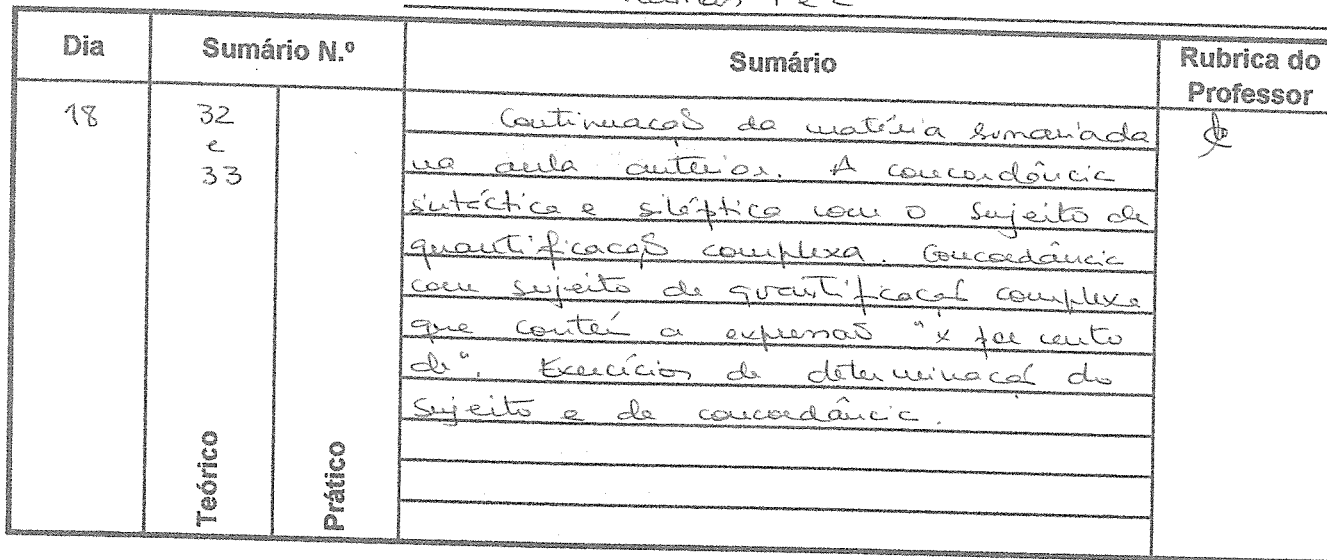 Turmas 1 e 2
Dia Sumário N.º Sumário Rubrica do Professor
18 32 e 33
Continuação da matéria sumariada
na aula anterior. A concordância
sintáctica e siléptica com o sujeito de
quantificação complexa. Concordância
com sujeito de quantificação complexa
que contém a expressão "x por cento
de". Exercícios de determinação do
sujeito e de concordância.
Teórico
Prático